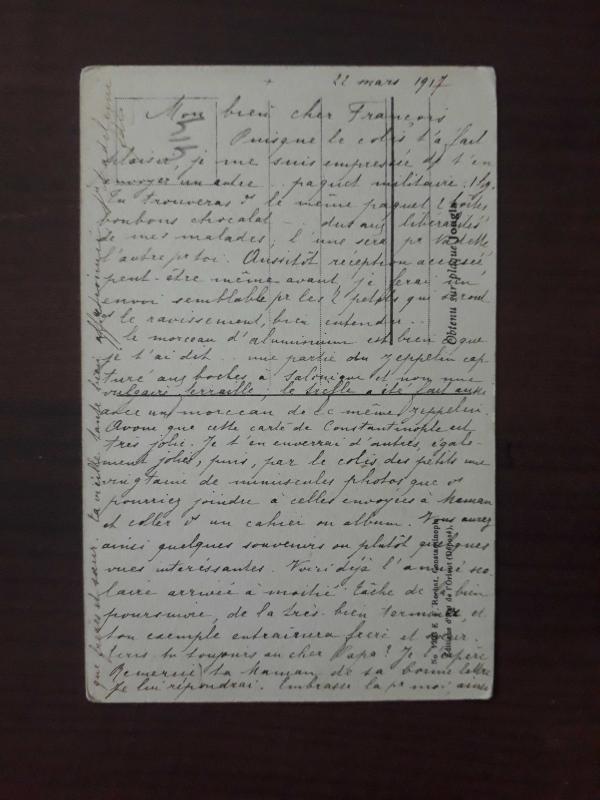 22 mars 1917
Mon bien cher François
Puisque le colis t'a fait
plaisir, je me suis empressée de t'en
envoyer un autre .. paquet militaire. 1kg.
Tu trouveras ds le même paquet 2 boîtes
bonbons chocolat - dus aux libéralités
de mes malades, l'une sera pr
l'autre pr toi. Aussitôt réception accusée
peut-être même avant, je ferai un
envoi semblable pr les 2 petits qui seront
ds le ravissement, bien entendu..
le morceau d'aluminium est bien ce que
je t'ai dit .. une partie du zeppelin cap-
turé aux boches à Salonique et non une
vulgaire ferraille, le trèfle a été fait aussi
avec un morceau de ce même zeppelin.
Avoue que cette carte de Constantinople est
très jolie. Je t'en enverrai d'autres, égale-
ment jolies, puis, par le colis des petits une
vingtaine de minuscules photos que vs
pourriez joindre à celles envoyées à Maman
et coller ds un cahier ou album. Vous aurez
ainsi quelques souvenirs ou plutôt quelques
vues intéressantes. Voici déjà l'année sco-
laire arrivée à moitié tâche de la bien
poursuivre, de la très bien terminer, et
ton exemple entraînera frère et soeur.
Ecris tu toujours au cher Papa? Je l'espère
Remercie ta Maman de sa bonne lettre
Je lui répondrai. Embrasse la pr moi, ainsi
que frères et soeur. ta vieille tante bien affectionnée
515
Obtenu sur plaque Jougla
No E. F. Rochat, Constantinople
Editions d'Art de l'Orient (Déposé).